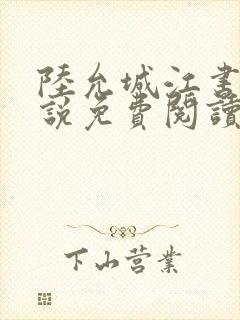 陸允城江書
說免費閱讀
下山营業